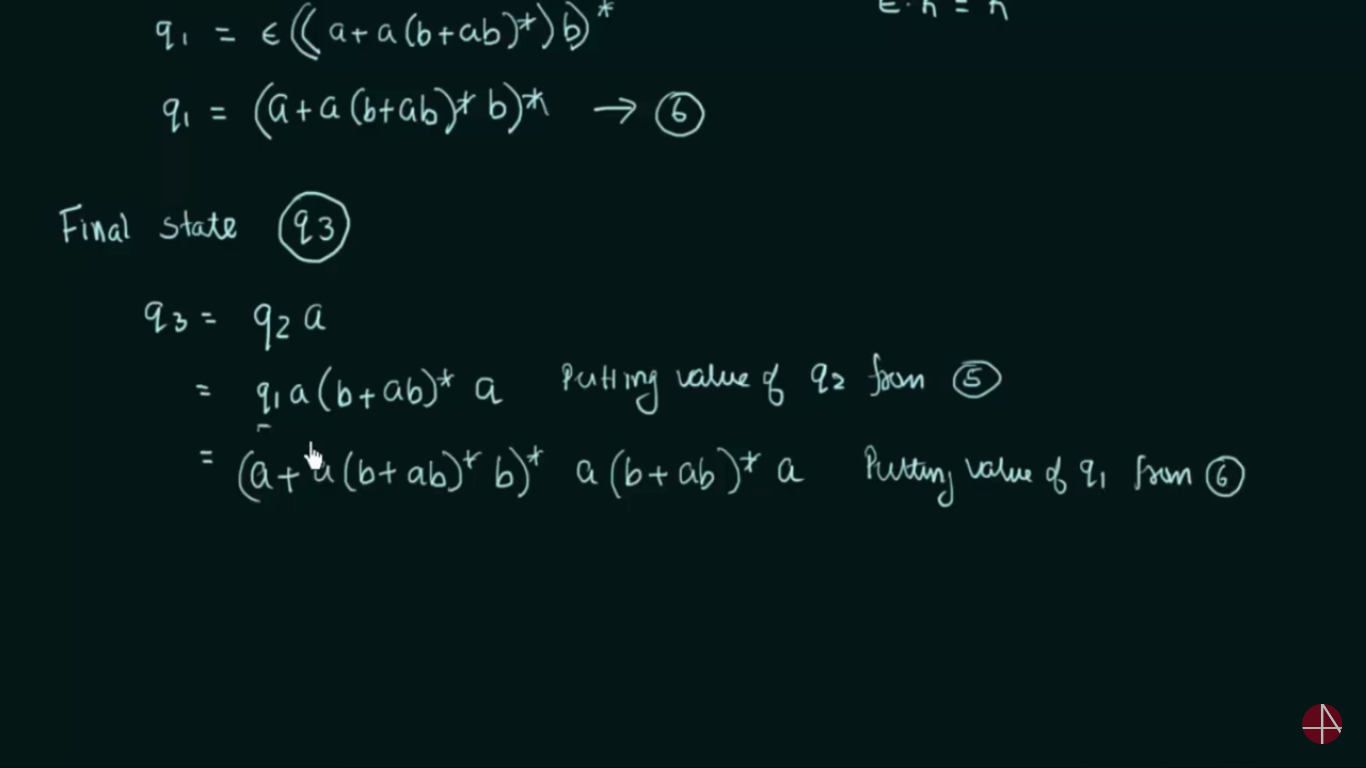 ϵ·R = R
q₁ = ϵ((a+a(b+ab)*)b)*
q₁ = (a+a(b+ab)*b)* → ⑥
Final state q3
q₃ = q₂a
= q₁a(b+ab)*a Putting value of q₂ from ⑤
= (a+a(b+ab)*b)* a(b+ab)*a Putting value of q₁ from ⑥